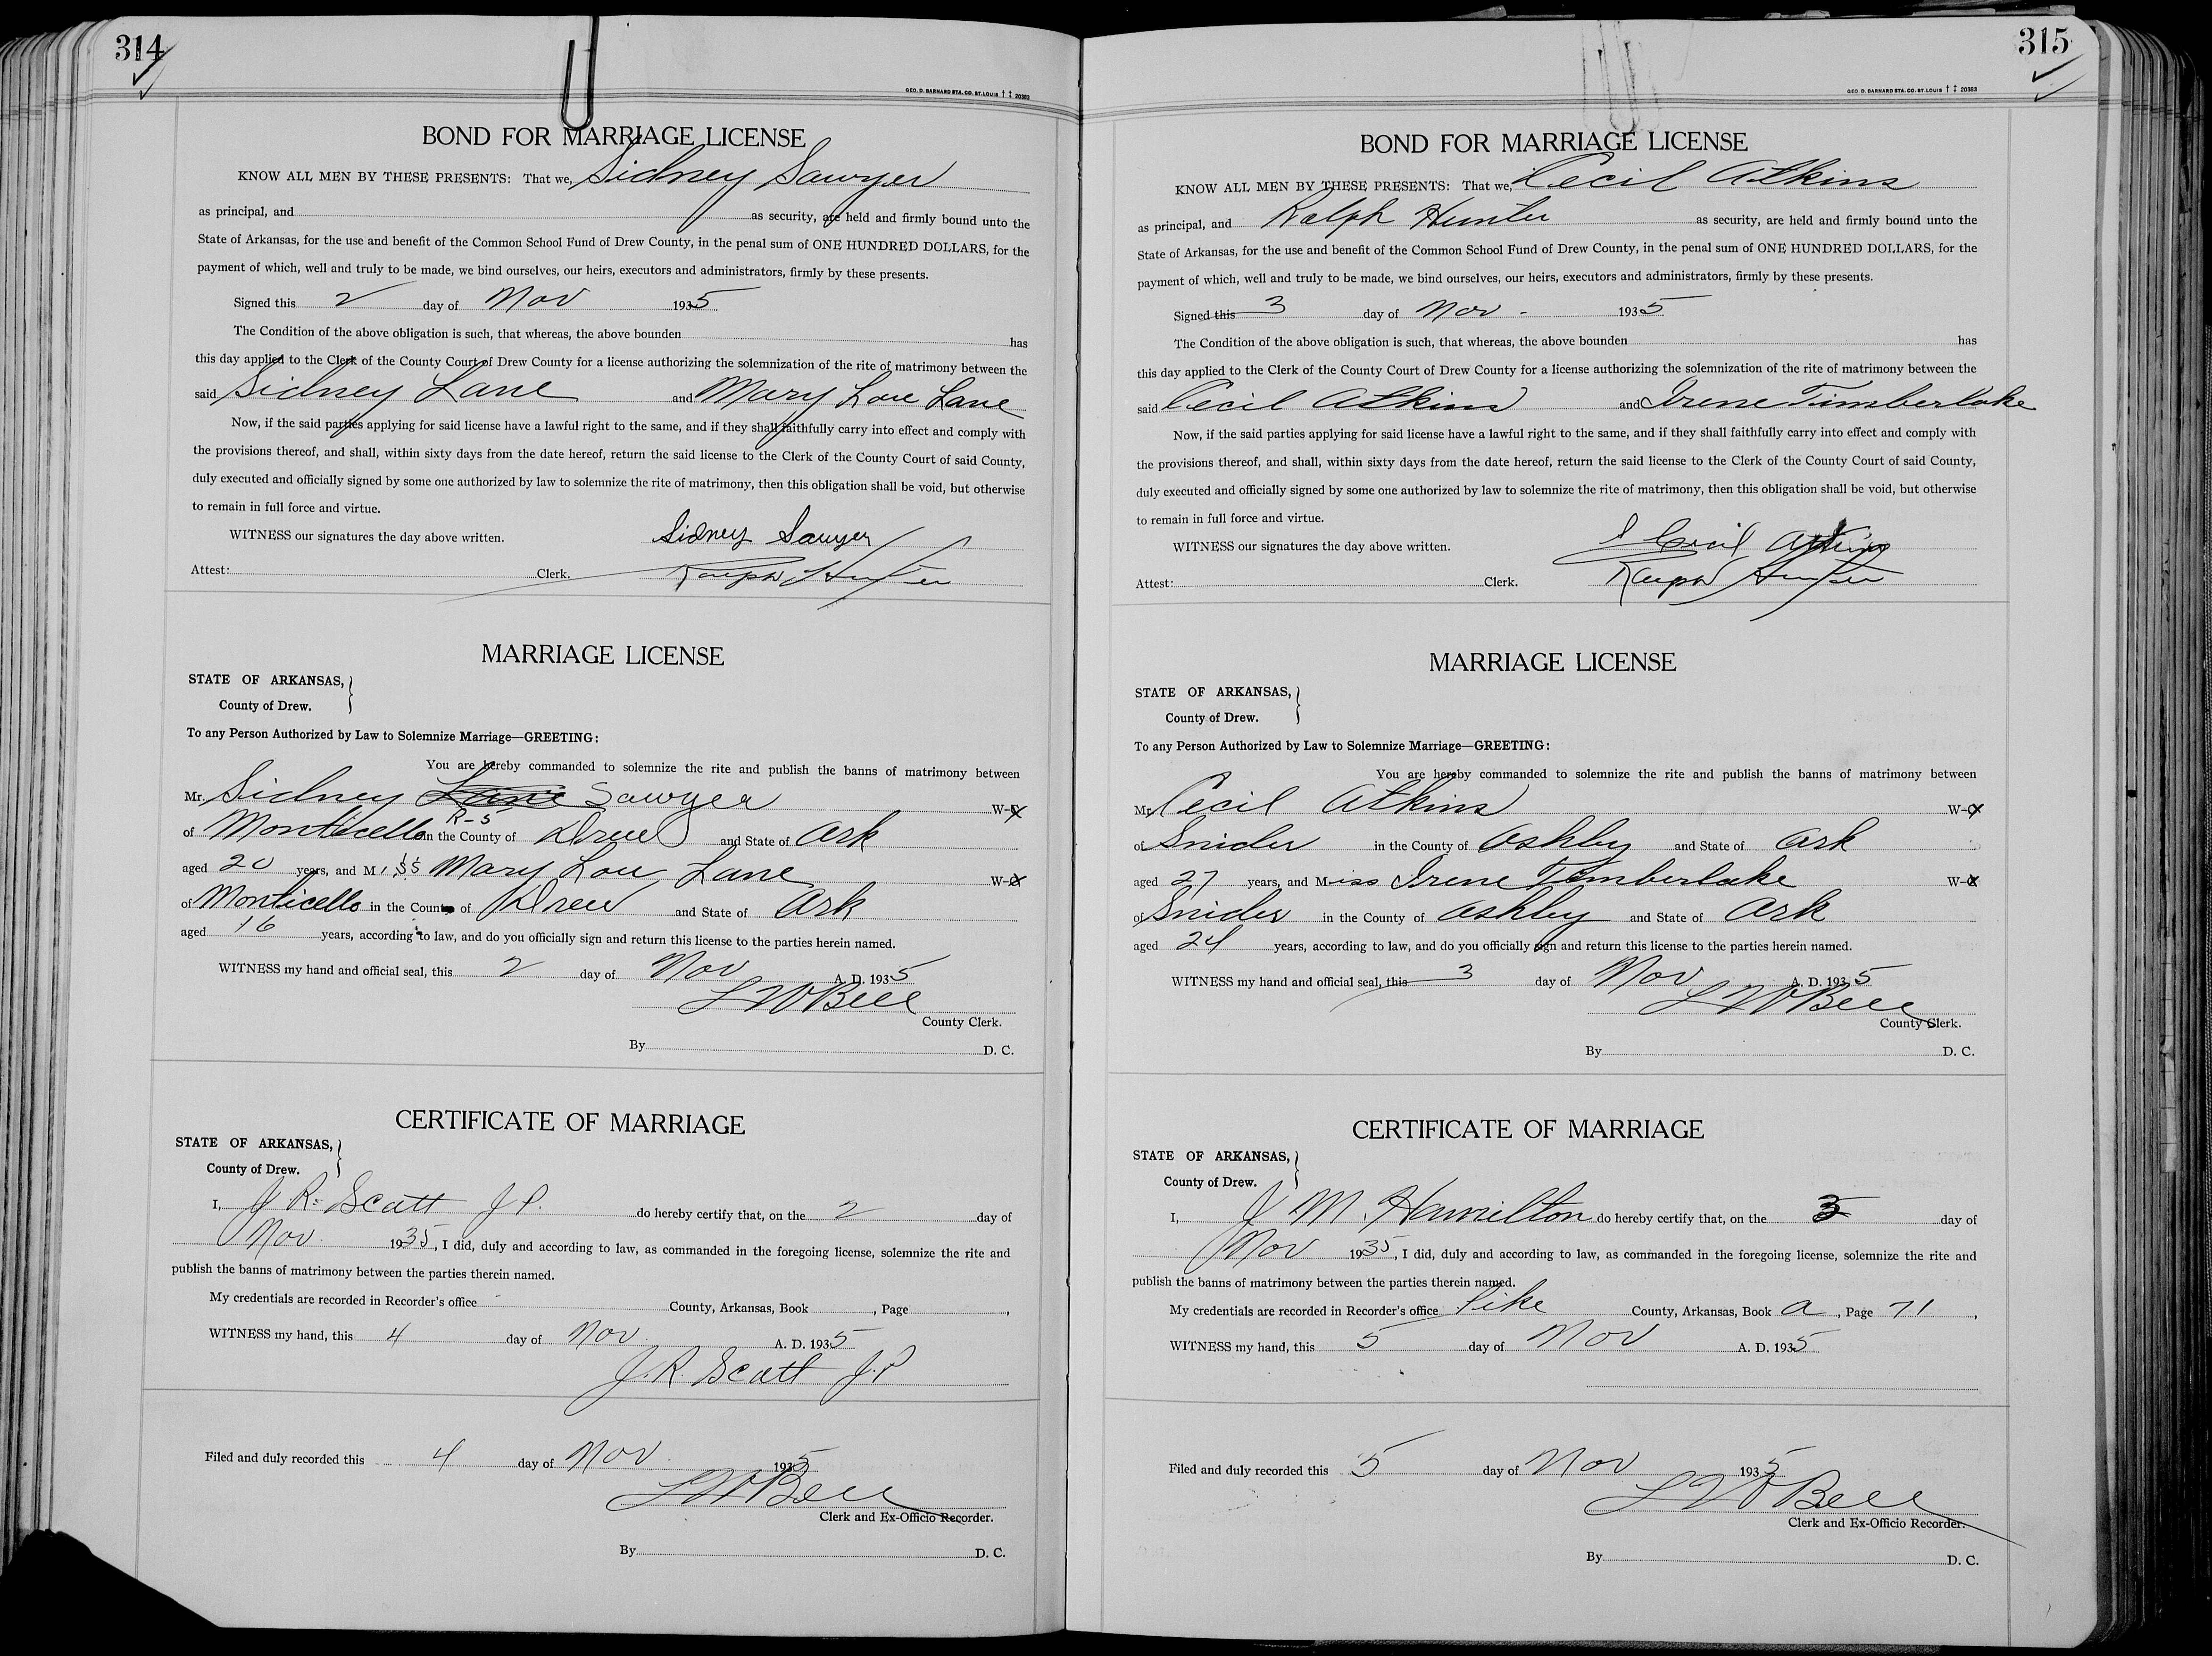 314
GEO. D. BARNARD STA. CO. ST. LOUIS † ‡ 20383
BOND FOR MARRIAGE LICENSE
KNOW ALL MEN BY THESE PRESENTS: That we, Sidney Sawyer
as principal, and as security, are held and firmly bound unto the
State of Arkansas, for the use and benefit of the Common School Fund of Drew County, in the penal sum of ONE HUNDRED DOLLARS, for the
payment of which, well and truly to be made, we bind ourselves, our heirs, executors and administrators, firmly by these presents.
Signed this 2 day of Nov 1935
The Condition of the above obligation is such, that whereas, the above bounden has
this day applied to the Clerk of the County Court of Drew County for a license authorizing the solemnization of the rite of matrimony between the
said Sidney Lane and Mary Lou Lane
Now, if the said parties applying for said license have a lawful right to the same, and if they shall faithfully carry into effect and comply with
the provisions thereof, and shall, within sixty days from the date hereof, return the said license to the Clerk of the County Court of said County,
duly executed and officially signed by some one authorized by law to solemnize the rite of matrimony, then this obligation shall be void, but otherwise
to remain in full force and virtue.
WITNESS our signatures the day above written. Sidney Sawyer
Attest: Clerk. Ralph Hunter
MARRIAGE LICENSE
STATE OF ARKANSAS,
County of Drew.
To any Person Authorized by Law to Solemnize Marriage—GREETING:
You are hereby commanded to solemnize the rite and publish the banns of matrimony between
Mr. Sidney Lane Sawyer W-C
R-5
of Monticello in the County of Drew and State of Ark
aged 20 years, and Miss Mary Lou Lane W-C
of Monticello in the County of Drew and State of Ark
aged 16 years, according to law, and do you officially sign and return this license to the parties herein named.
WITNESS my hand and official seal, this 2 day of Nov A. D. 1935
L W Bell
County Clerk.
By D. C.
CERTIFICATE OF MARRIAGE
STATE OF ARKANSAS,
County of Drew.
I, J. R. Scott J P. do hereby certify that, on the 2 day of
Nov 1935, I did, duly and according to law, as commanded in the foregoing license, solemnize the rite and
publish the banns of matrimony between the parties therein named.
My credentials are recorded in Recorder's office County, Arkansas, Book , Page ,
WITNESS my hand, this 4 day of Nov. A. D. 1935
J. R. Scott J. P
Filed and duly recorded this 4 day of Nov. 1935
L W Bell
Clerk and Ex-Officio Recorder.
By D. C.
315
GEO. D. BARNARD STA. CO. ST. LOUIS † ‡ 20383
BOND FOR MARRIAGE LICENSE
KNOW ALL MEN BY THESE PRESENTS: That we, Cecil Atkins
as principal, and Ralph Hunter as security, are held and firmly bound unto the
State of Arkansas, for the use and benefit of the Common School Fund of Drew County, in the penal sum of ONE HUNDRED DOLLARS, for the
payment of which, well and truly to be made, we bind ourselves, our heirs, executors and administrators, firmly by these presents.
Signed this 3 day of Nov - 1935
The Condition of the above obligation is such, that whereas, the above bounden has
this day applied to the Clerk of the County Court of Drew County for a license authorizing the solemnization of the rite of matrimony between the
said Cecil Atkins and Irene Timberlake
Now, if the said parties applying for said license have a lawful right to the same, and if they shall faithfully carry into effect and comply with
the provisions thereof, and shall, within sixty days from the date hereof, return the said license to the Clerk of the County Court of said County,
duly executed and officially signed by some one authorized by law to solemnize the rite of matrimony, then this obligation shall be void, but otherwise
to remain in full force and virtue.
WITNESS our signatures the day above written. Cecil Atkins
Attest: Clerk. Ralph Hunter
MARRIAGE LICENSE
STATE OF ARKANSAS,
County of Drew.
To any Person Authorized by Law to Solemnize Marriage—GREETING:
You are hereby commanded to solemnize the rite and publish the banns of matrimony between
Mr. Cecil Atkins W-C
of Snider in the County of Ashley and State of Ark
aged 27 years, and Miss Irene Timberlake W-C
of Snider in the County of Ashley and State of Ark
aged 24 years, according to law, and do you officially sign and return this license to the parties herein named.
WITNESS my hand and official seal, this 3 day of Nov A. D. 1935
L W Bell
County Clerk.
By D. C.
CERTIFICATE OF MARRIAGE
STATE OF ARKANSAS,
County of Drew.
I, J M. Hamilton do hereby certify that, on the 3 day of
Nov 1935, I did, duly and according to law, as commanded in the foregoing license, solemnize the rite and
publish the banns of matrimony between the parties therein named.
My credentials are recorded in Recorder's office Pike County, Arkansas, Book a, Page 71,
WITNESS my hand, this 5 day of Nov A. D. 1935
Filed and duly recorded this 5 day of Nov 1935
L W Bell
Clerk and Ex-Officio Recorder.
By D. C.